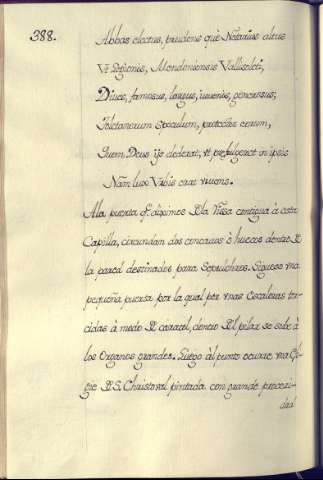 388.
Abbas electus, prudens què Notarius altus
Vt Regionis, Mondoniensis Vallisoleti,
Dives, famosus, largus, iuvenis, generosus;
Toletanorum Speculum, protectio eorum,
Quem Deus ijs dederat, vt prefulgeat in ipsis
Nam luvo Vrbis erat vivens.
A la puerta q.e diximos D la contigua à esta
Capilla, circundam dos concavos ò huecos dentro D
la pared destinados para Sepulchros. Siguese vna
pequeña puerta por la qual por vnas escaleras tor-
cidas à modo D caracol, dentro Dl pilar se sube à
los Organos grandes. Luego àl punto ocurre vna Efi-
gie D S. Christoval pintada con grande proceri-
dad